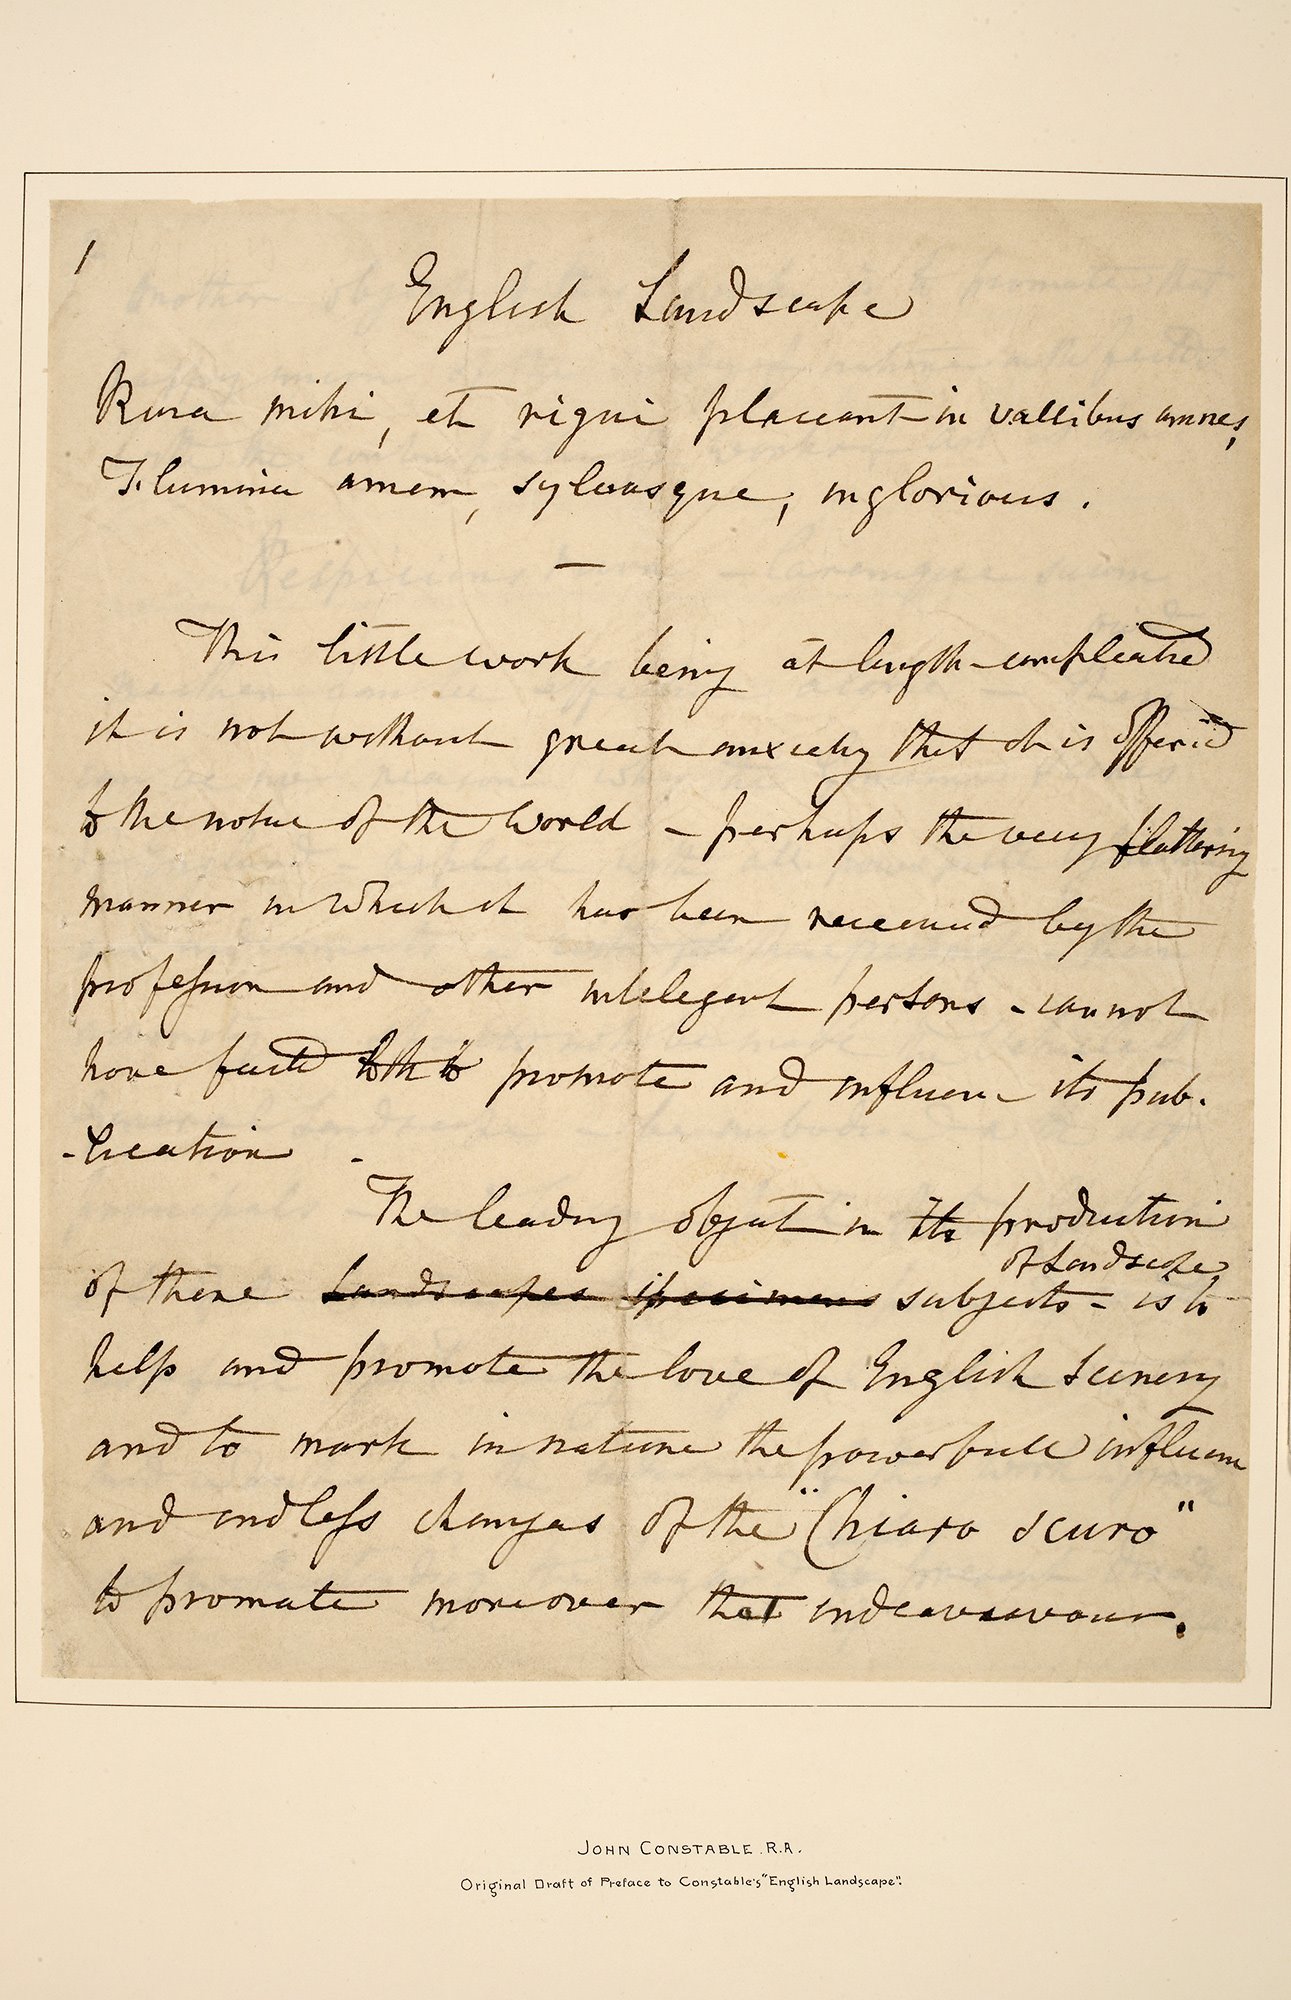 1
English Landscape
Rura mihi, et rigui placeant in vallibus amnes,
Flumina amem, sylvasque, inglorious.
—
This little work being at length - compleated
it is not without great anxiety that it is offerid
to the notice of the World - perhaps the very flattering
manner in which it has been received by the
profession and other intelegent persons - cannot
have faild to promote and influence its pub.
-lication -
The leading object in its production
of Landscape
of these Landscapes specimens subjects - is to
help and promote the love of English Scenery
and to mark in nature the powerfull influence
and endless changes of the "Chiaro scuro"
to promote moreover that endeavavour.
JOHN CONSTABLE. R.A.
Original Draft of Preface to Constable's "English Landscape".